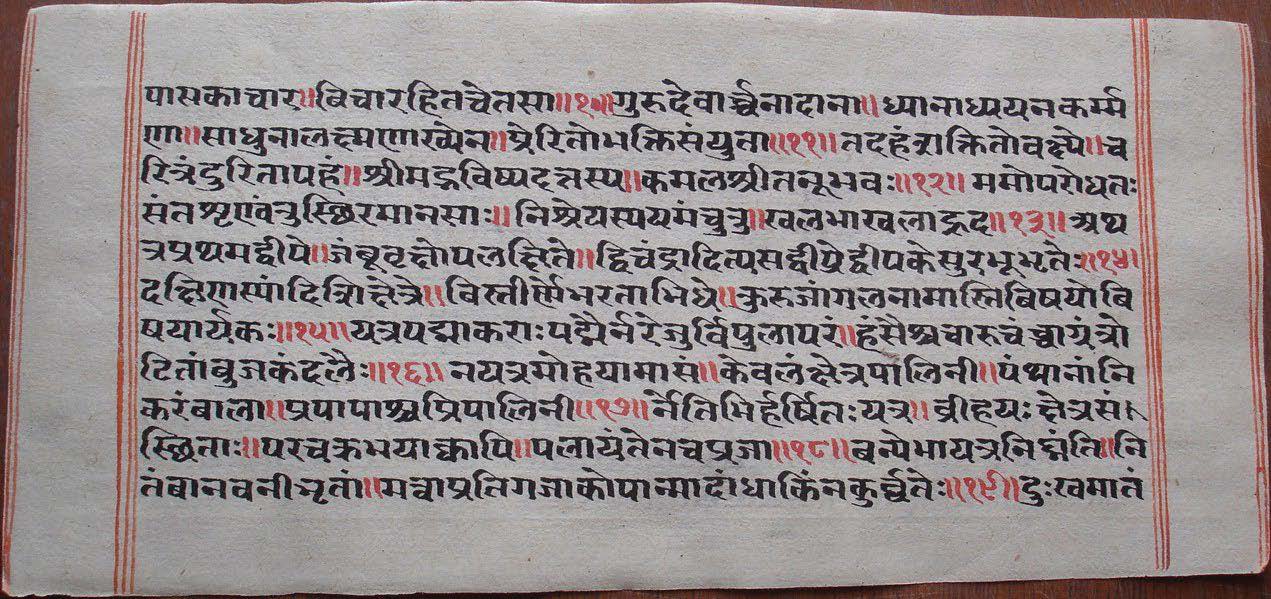 पासकाचार॥विचाररहितचेतसा॥१०॥गुरुदेवार्च्चनादाना॥ध्यानाध्ययनकर्म्म
णा॥साधुनालक्ष्मणाख्येन॥प्रेरितोभक्तिसंयुता॥११॥तदहंशक्तितोवक्ष्ये॥च
रित्रंदुरितापहं॥श्रीमद्भविष्यदत्तस्य॥कमलश्रीतनूभवः॥१२॥ममोपरोधतः
संतशृण्वंतुस्छिरमानसाः॥खलभाखलाद्रुद॥१३॥अथ
त्रप्रथमद्वीपे॥जंबूवृक्षोपलक्षिते॥द्विचंद्रादित्यसद्वीप्रेद्वीपकेसुरभूभृतेः॥१४॥
दक्षिणास्यांदिशिक्षेत्रे॥विस्तीर्णेभरताभिधे॥कुरुजांगलनामास्तिविषयोवि
षयार्यकः॥१५॥यत्रपद्माकराःपद्मैर्नरेजुर्विपुलापरं॥हंसैश्चचारुचंच्वाग्रंत्रो
टितांबुजकंदलैः॥१६॥नयत्रमोहयामासं॥केवलंक्षेत्रपालिनी॥पंथानांनि
करंबाला॥प्रपापाश्चप्रिपालिनी॥१७॥र्नेतिभिर्हर्षितःयत्र॥व्रीहयःक्षेत्रसं
स्छिताः॥परचक्रभयाक्वापि॥पलायंतेनचप्रजा॥१८॥वन्येभायत्रनिघ्नंति॥नि
तंबानवनीभृतां॥मत्वाप्रतिगजाकोपान्मादांधाकिंनकुर्व्वतेः॥१९॥दुःखमातं